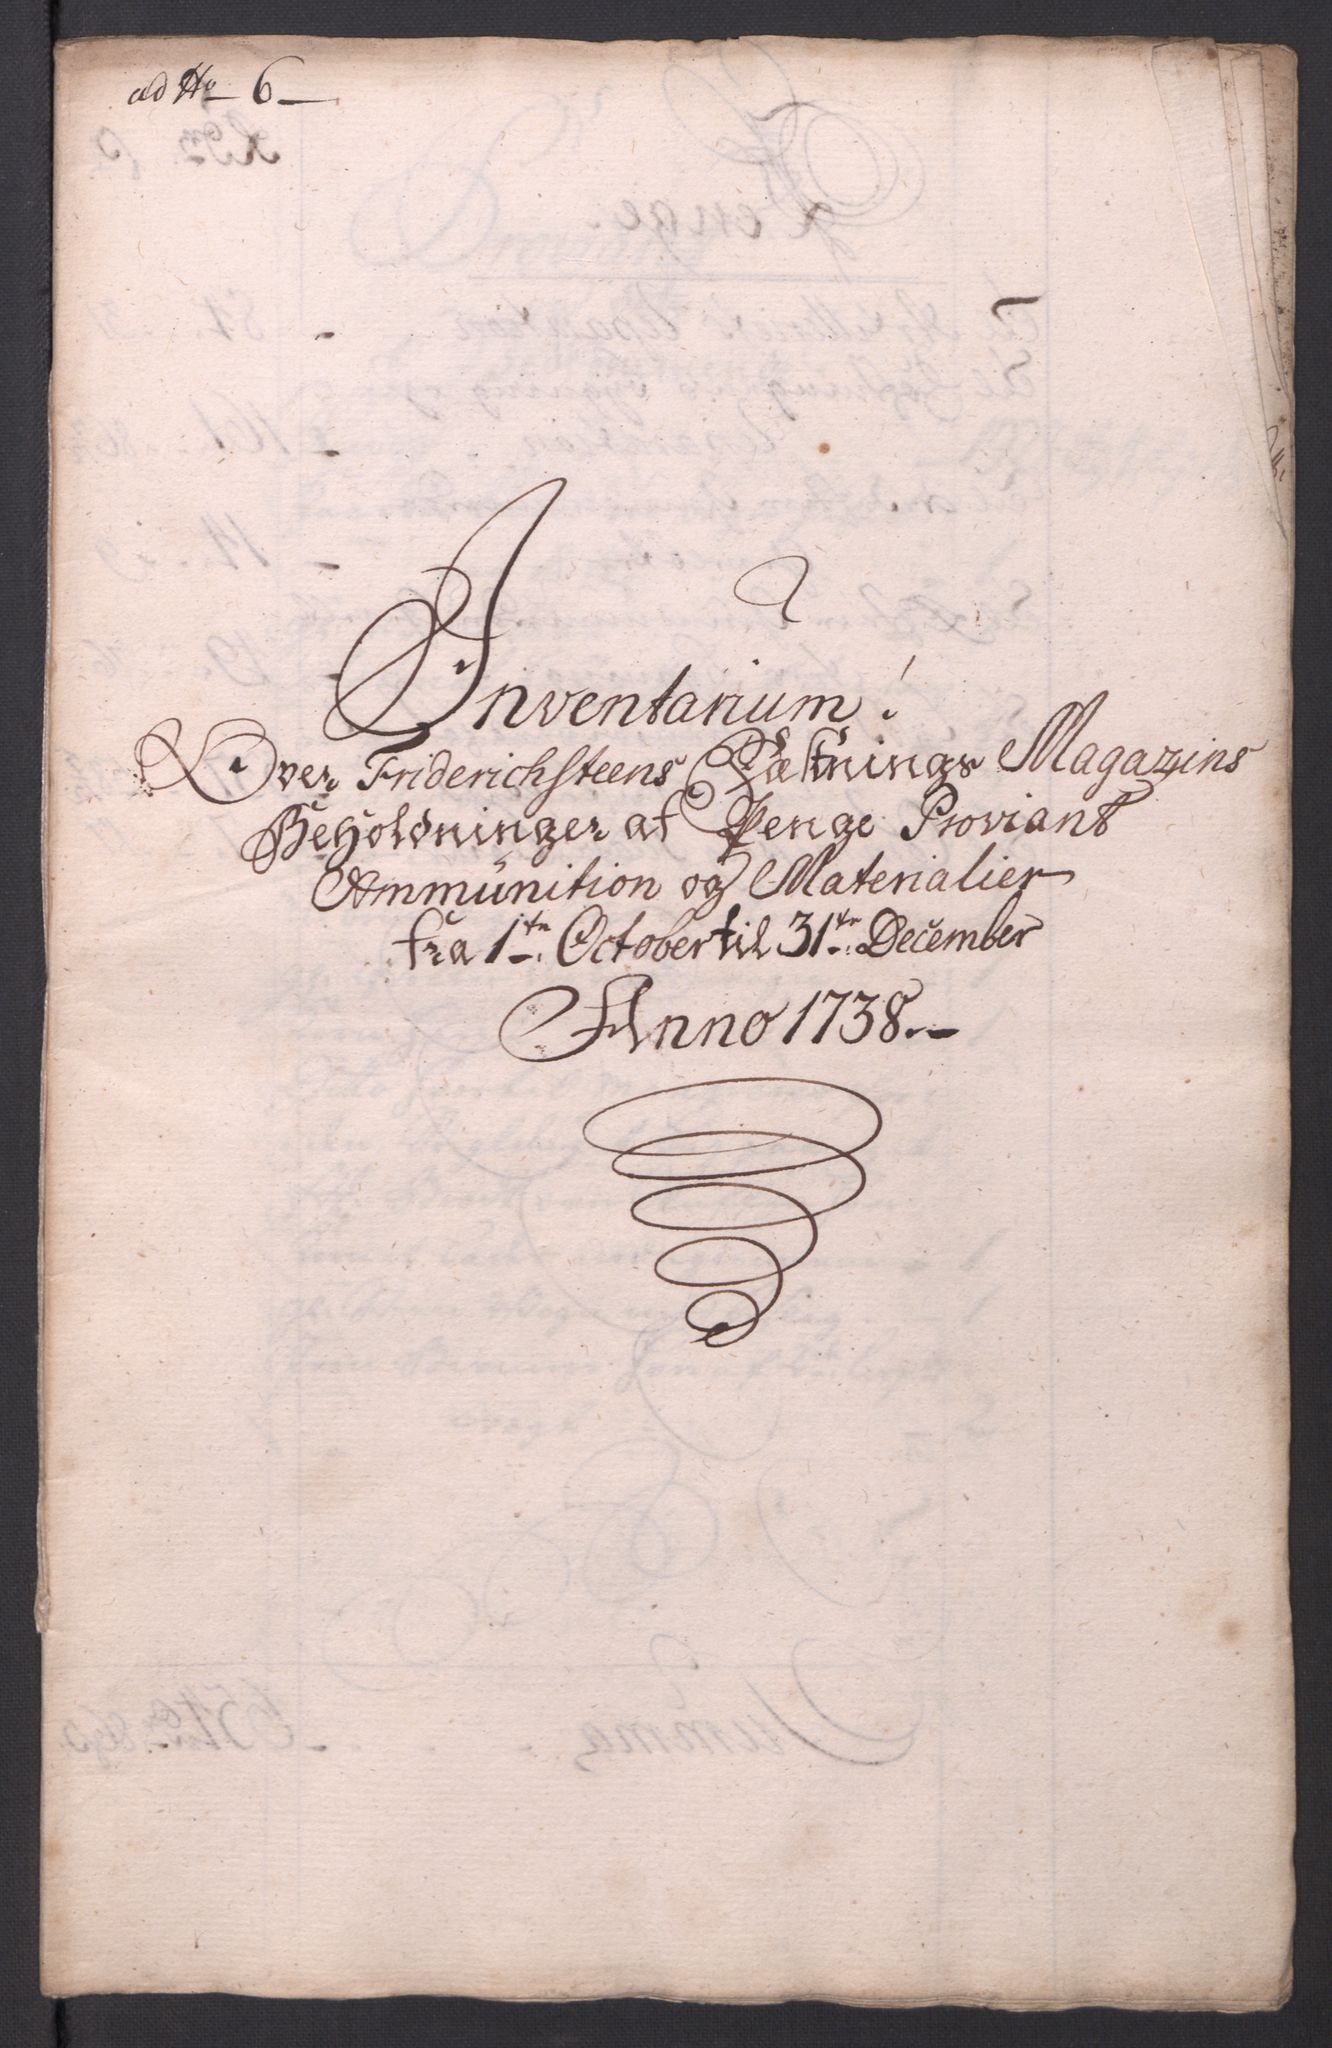 ad No 6
Inventarium!
Over Friderichsteens Fæstnings Magazins
Beholdninger af Penge Proviant
Ammunition og Materialier
fra 1te October til 31te December
Anno 1738.